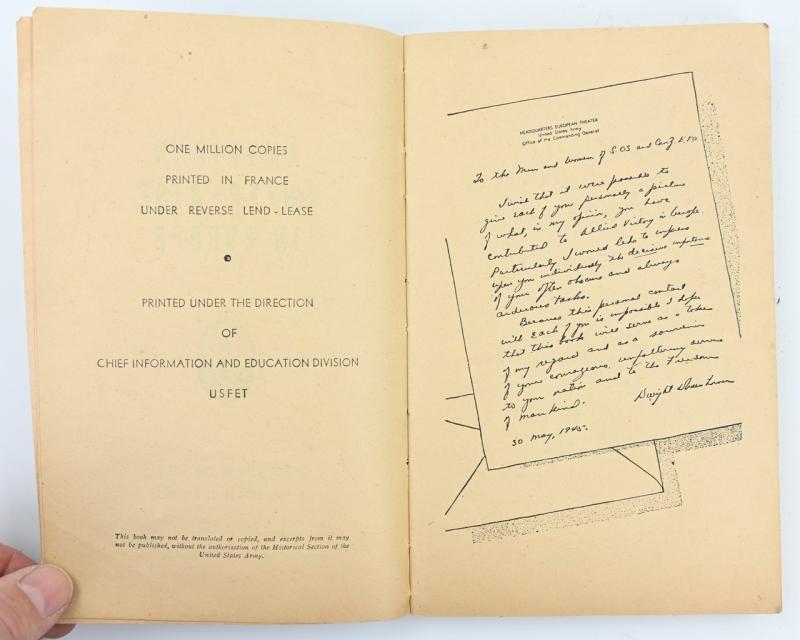 ONE MILLION COPIES
PRINTED IN FRANCE
UNDER REVERSE LEND-LEASE
PRINTED UNDER THE DIRECTION
OF
CHIEF INFORMATION AND EDUCATION DIVISION
USFET
This book may not be translated or copied, and excerpts from it may
not be published, without the authorisation of the Historical Section of the
United States Army.
HEADQUARTERS EUROPEAN THEATER
United States Army
Office of the Commanding General
To the Men and Women of SOS and ComZ ETO
I wish that it were possible to
give each of you personally a picture
of what, in my opinion, you have
contributed to Allied Victory in Europe.
Particularly I would like to impress
upon you individually the decisive importance
of your often obscure and always
arduous tasks.
Because this personal contact
with each of you is impossible I hope
that this book will serve as a token
of my regard and as a souvenir
of your courageous, unfaltering service
to your nation and to the Freedom
of mankind.
Dwight D Eisenhower
30 May, 1945.